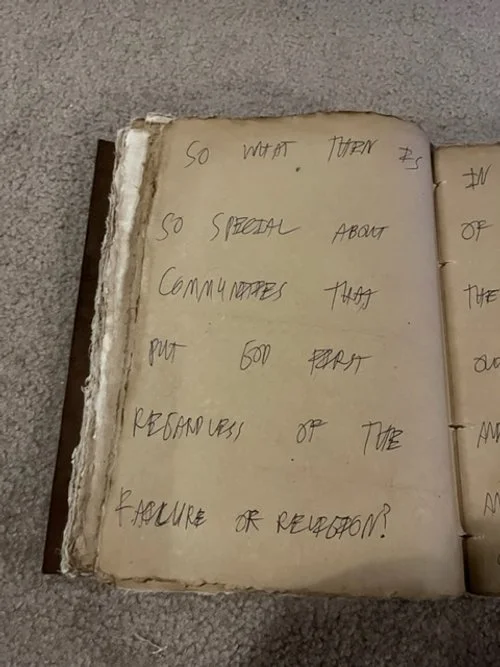 SO WHAT THEN IS
SO SPECIAL ABOUT
COMMUNITIES THAT
PUT GOD FIRST
REGARDLESS OF THE
FAILURE OF RELIGION?
IN
OF
THE